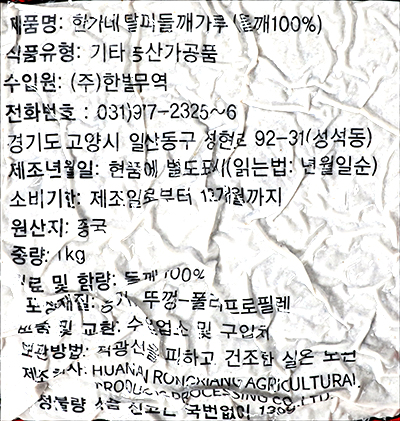 제품명: 한가네 탈피들깨가루 (들깨100%)
식품유형: 기타 농산가공품
수입원: (주)한별무역
전화번호 : 031)977-2325~6
경기도 고양시 일산동구 성현로 92-31(성석동)
제조년월일: 현품에 별도표시(읽는법: 년월일순)
소비기한: 제조일로부터 12개월까지
원산지: 중국
중량: 1kg
원료 및 함량: 들깨 100%
포장재질: 용기, 뚜껑-폴리프로필렌
반품 및 교환: 수입업소 및 구입처
보관방법: 직광선을 피하고 건조한 실온 보관
제조회사: HUANAI RONGXIANG AGRICULTURAL
PRODUCTS PROCESSING CO.,LTD.
부정불량 식품 신고는 국번없이 1399